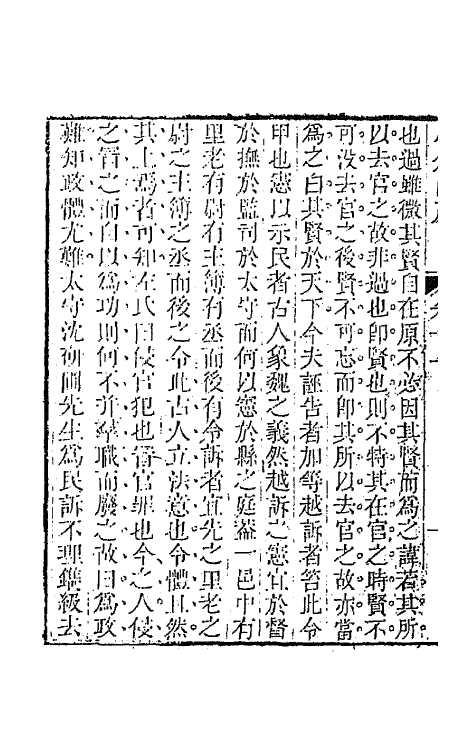 也過雖微其賢自在原不必因其賢而為之諱若其所
以去官之故非過也卽賢也則不特其在官之時賢不
可沒去官之後賢不可忘而卽其所以去官之故亦當
為之白其賢於天下今夫誣告者加等越訴者笞此令
甲也憲以示民者古人象魏之義然越訴之憲宜於督
於撫於監司於太守而何以憲於縣之庭蓋一邑中有
里老有尉有主簿有丞而後有令訴者宜先之里老之
尉之主簿之丞而後之令此古人立法意也令體且然
其上焉者可知左氏曰侵官犯也曠官罪也今之人侵
之官之而自以為功則何不并舉職而廢之故曰為政
難知政體尤難太守沈朝闇先生為民訴不理鐫級去